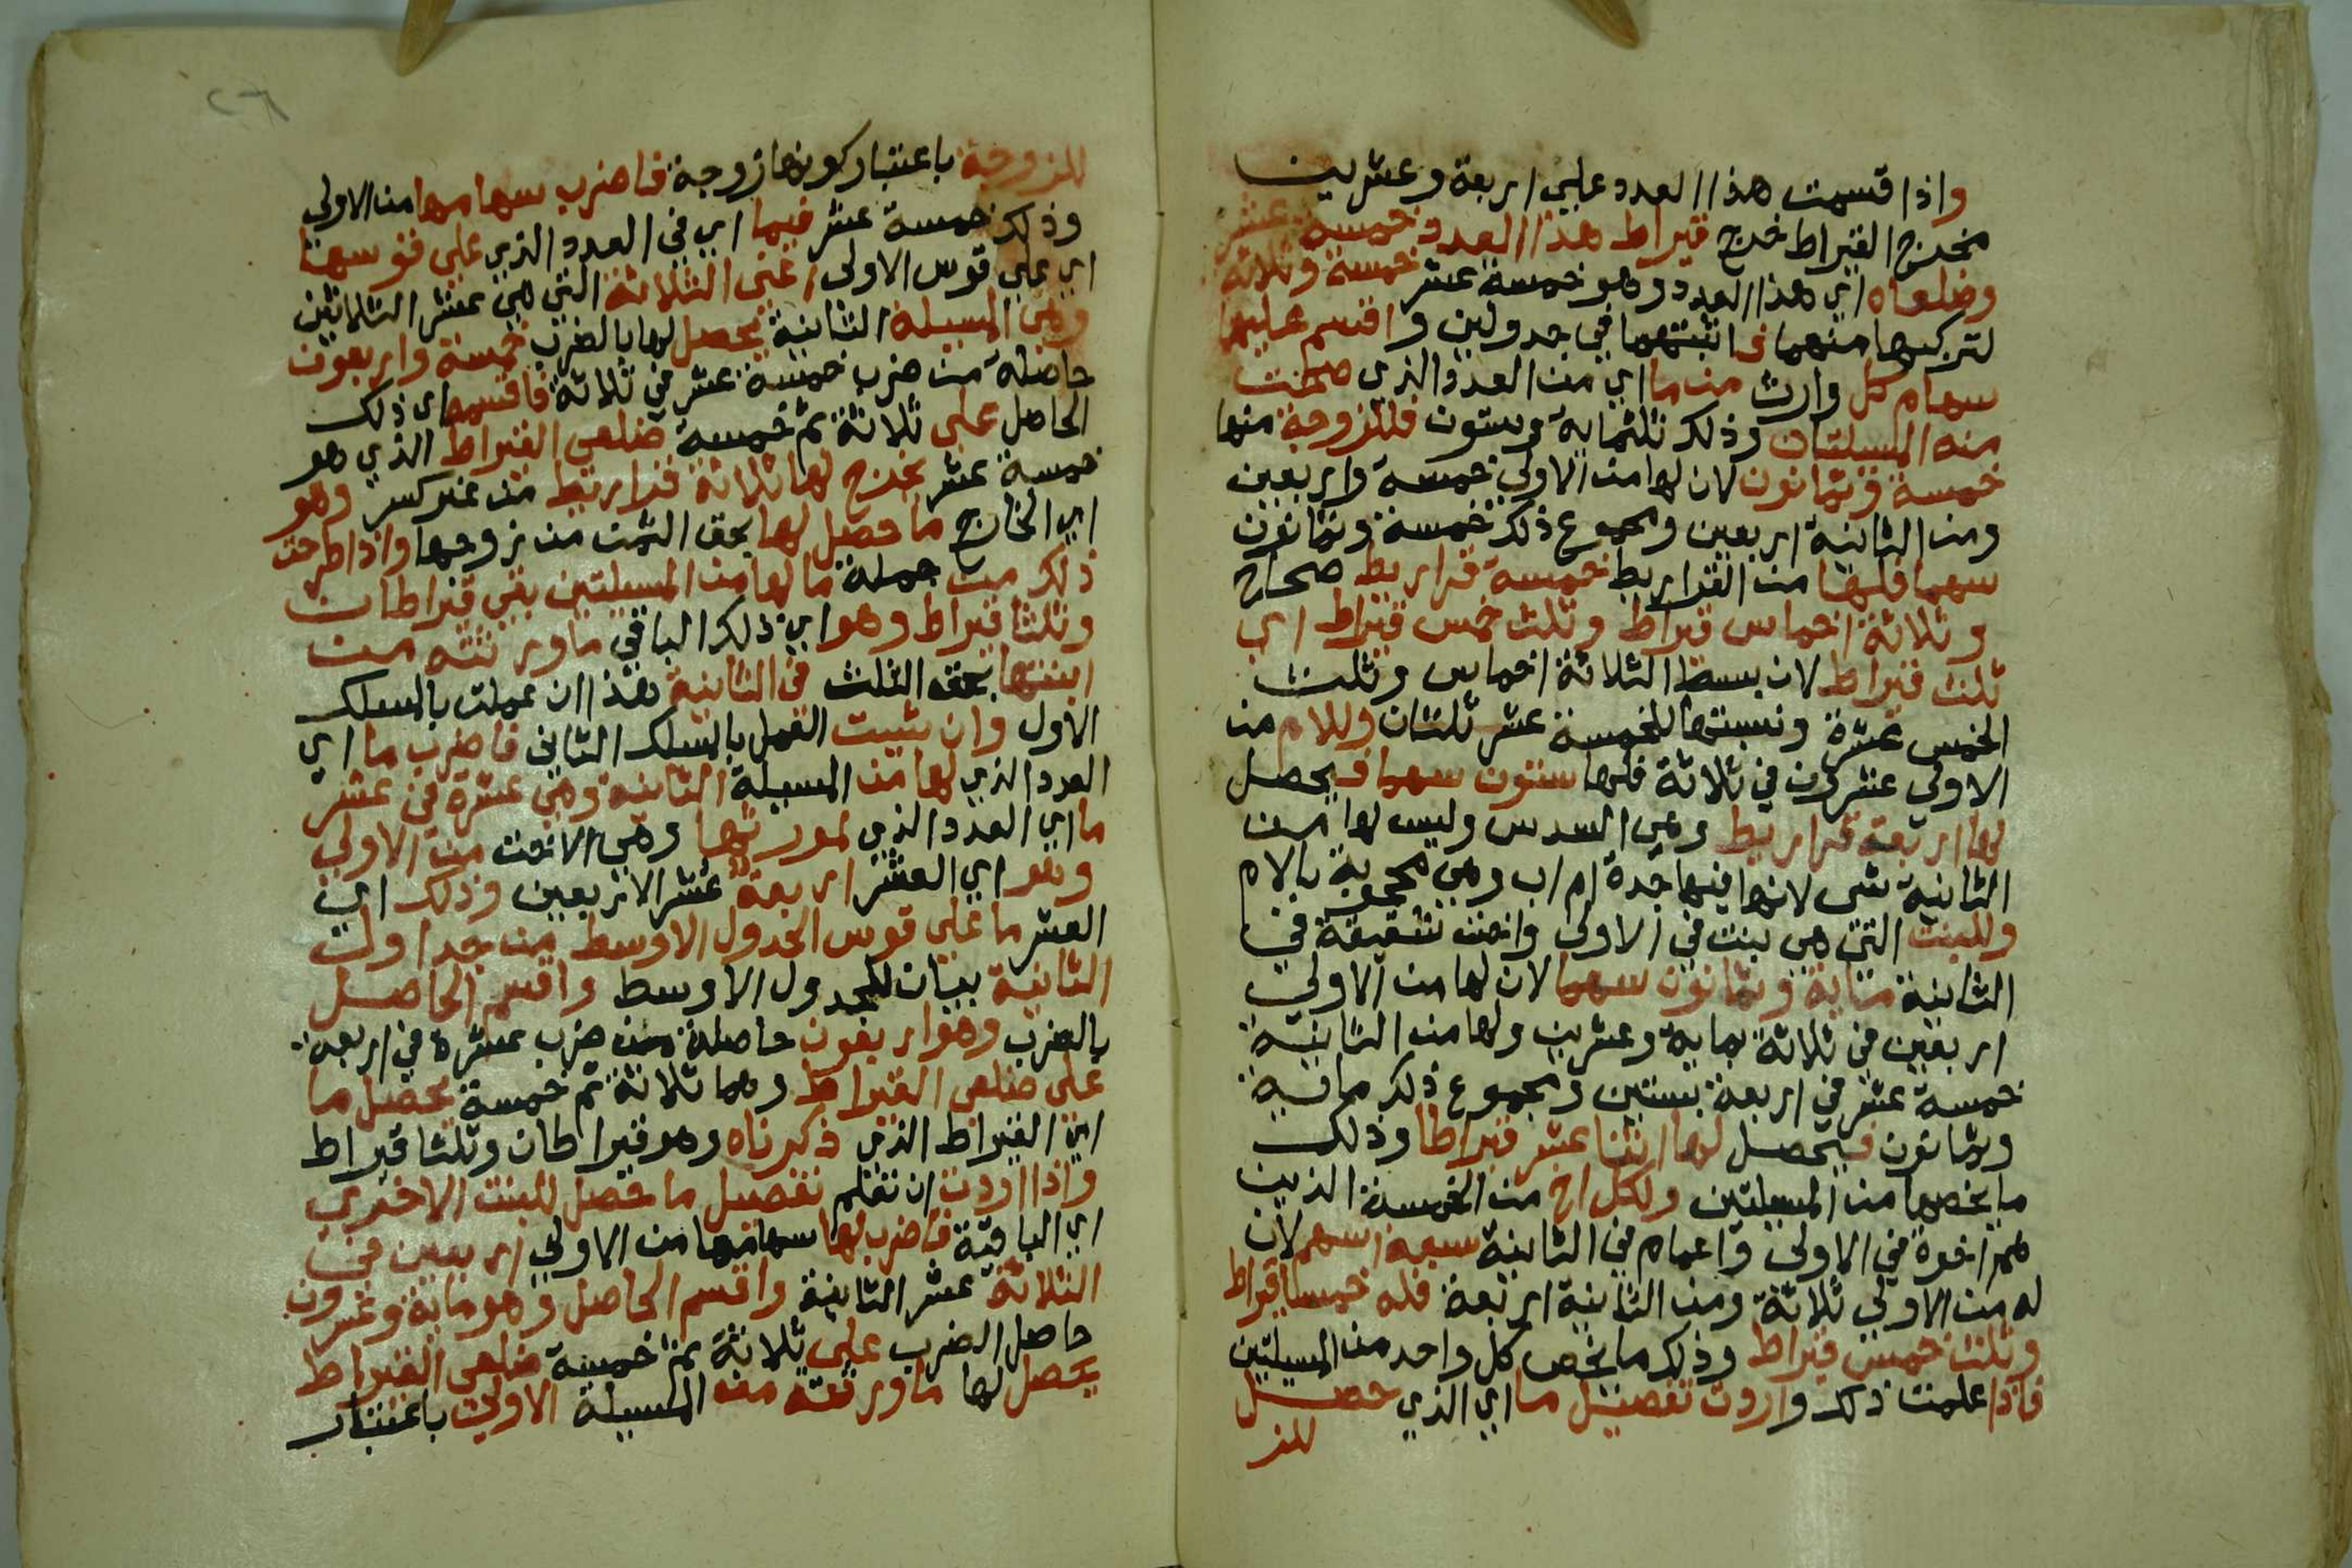 واذا قسمت هذا العدد علي اربعة وعشرين
مخرج القيراط خرج قيراط هذا العدد خمسة عشر
وضلعاه اي هذا العدد وهو خمسة عشر خمسة وثلاثة
لتركبها منهما فاثبتهما في جدولين واقسم عليهما
سهام كل وارث من ما اي من العدد الذي صحت
منه المسيلتان وذلك ثلثماية وستون فللزوجة منها
خمسة وثمانون لان لها من الاولي خمسة واربعين
ومن الثانية اربعين ومجموع ذلك خمسة وثمانون
سهما فلها من القراريط خمسة قراريط صحاح
وثلاثة اخماس قيراط وثلث خمس قيراط اي
ثلث قيراط لان بسط الثلاثة اخماس وثلث
الخمس عشرة ونسبتها للخمسة عشر ثلثان وللام من
الاولي عشرون في ثلاثة فلها ستون سهما فيحصل
لها اربعة قراريط وهي السدس وليس لها من
الثانية شي لانها فيها جدة ام اب وهي محجوبة بالام
وللبنت التي هي بنت في الاولي واخت شقيقة في
الثانية ماية وثمانون سهما لان لها من الاولي
اربعين في ثلاثة بماية وعشرين ولها من الثانية
خمسة عشر في اربعة بستين ومجموع ذلك ماية
وثمانون فيحصل لها اثنا عشر قيراطا وذلك
ما يخصها من المسيلتين ولكل اخ من الخمسة الذين
هم اخوة في الاولي واعمام في الثانية سبعة اسهم لان
له من الاولي ثلاثة ومن الثانية اربعة فله خمسا قيراط
وثلث خمس قيراط وذلك ما يخص كل واحد من المسيلتين
فاذا علمت ذلك واردت تفصيل ما اي الذي حصل
للز
٢٦
للزوجة باعتبار كونها زوجة فاضرب سهامها من الاولي
وذلك خمسة عشر فيما اي في العدد الذي علي قوسها
اي علي قوس الاولي اعني الثلاثة التي هي عشر الثلاثين
وهي المسيلة الثانية يحصل لها بالضرب خمسة واربعون
حاصلة من ضرب خمسة عشر في ثلاثة فاقسم اي ذلك
الحاصل علي ثلاثة ثم خمسة ضلعي القيراط الذي هو
خمسة عشر يخرج لها ثلاثة قراريط من غير كسر وهو
اي الخارج ما حصل لها بحق الثمن من زوجها واذا طرحت
ذلك من جملة ما لها من المسيلتين بقي قيراطان
وثلثا قيراط وهو اي ذلك الباقي ما ورثته من
ابنتها بحق الثلث في الثانية هذا ان عملت بالمسلك
الاول وان شيت العمل بالمسلك الثاني فاضرب ما اي
العدد الذي لها من المسيلة الثانية وهي عشرة في عشر
ما اي العدد الذي لمورثها وهي الاخت من الاولي
وهو اي العشر اربعة عشر الاربعين وذلك اي
العشر ما علي قوس الجدول الاوسط من جداول
الثانية بيان للجدول الاوسط واقسم الحاصل
بالضرب وهو اربعون حاصلة من ضرب عشرة في اربعة
علي ضلعي القيراط وهما ثلاثة ثم خمسة يحصل ما
اي القيراط الذي ذكرناه وهو قيراطان وثلثا قيراط
واذا اردت ان تعلم تفصيل ما حصل للبنت الاخري
اي الباقية فاضرب لها سهامها من الاولي اربعين في
الثلاثة عشر الثانية واقسم الحاصل وهو ماية وعشرون
حاصل الضرب علي ثلاثة ثم خمسة ضلعي القيراط
يحصل لها ما ورثته من المسيلة الاولي باعتبار